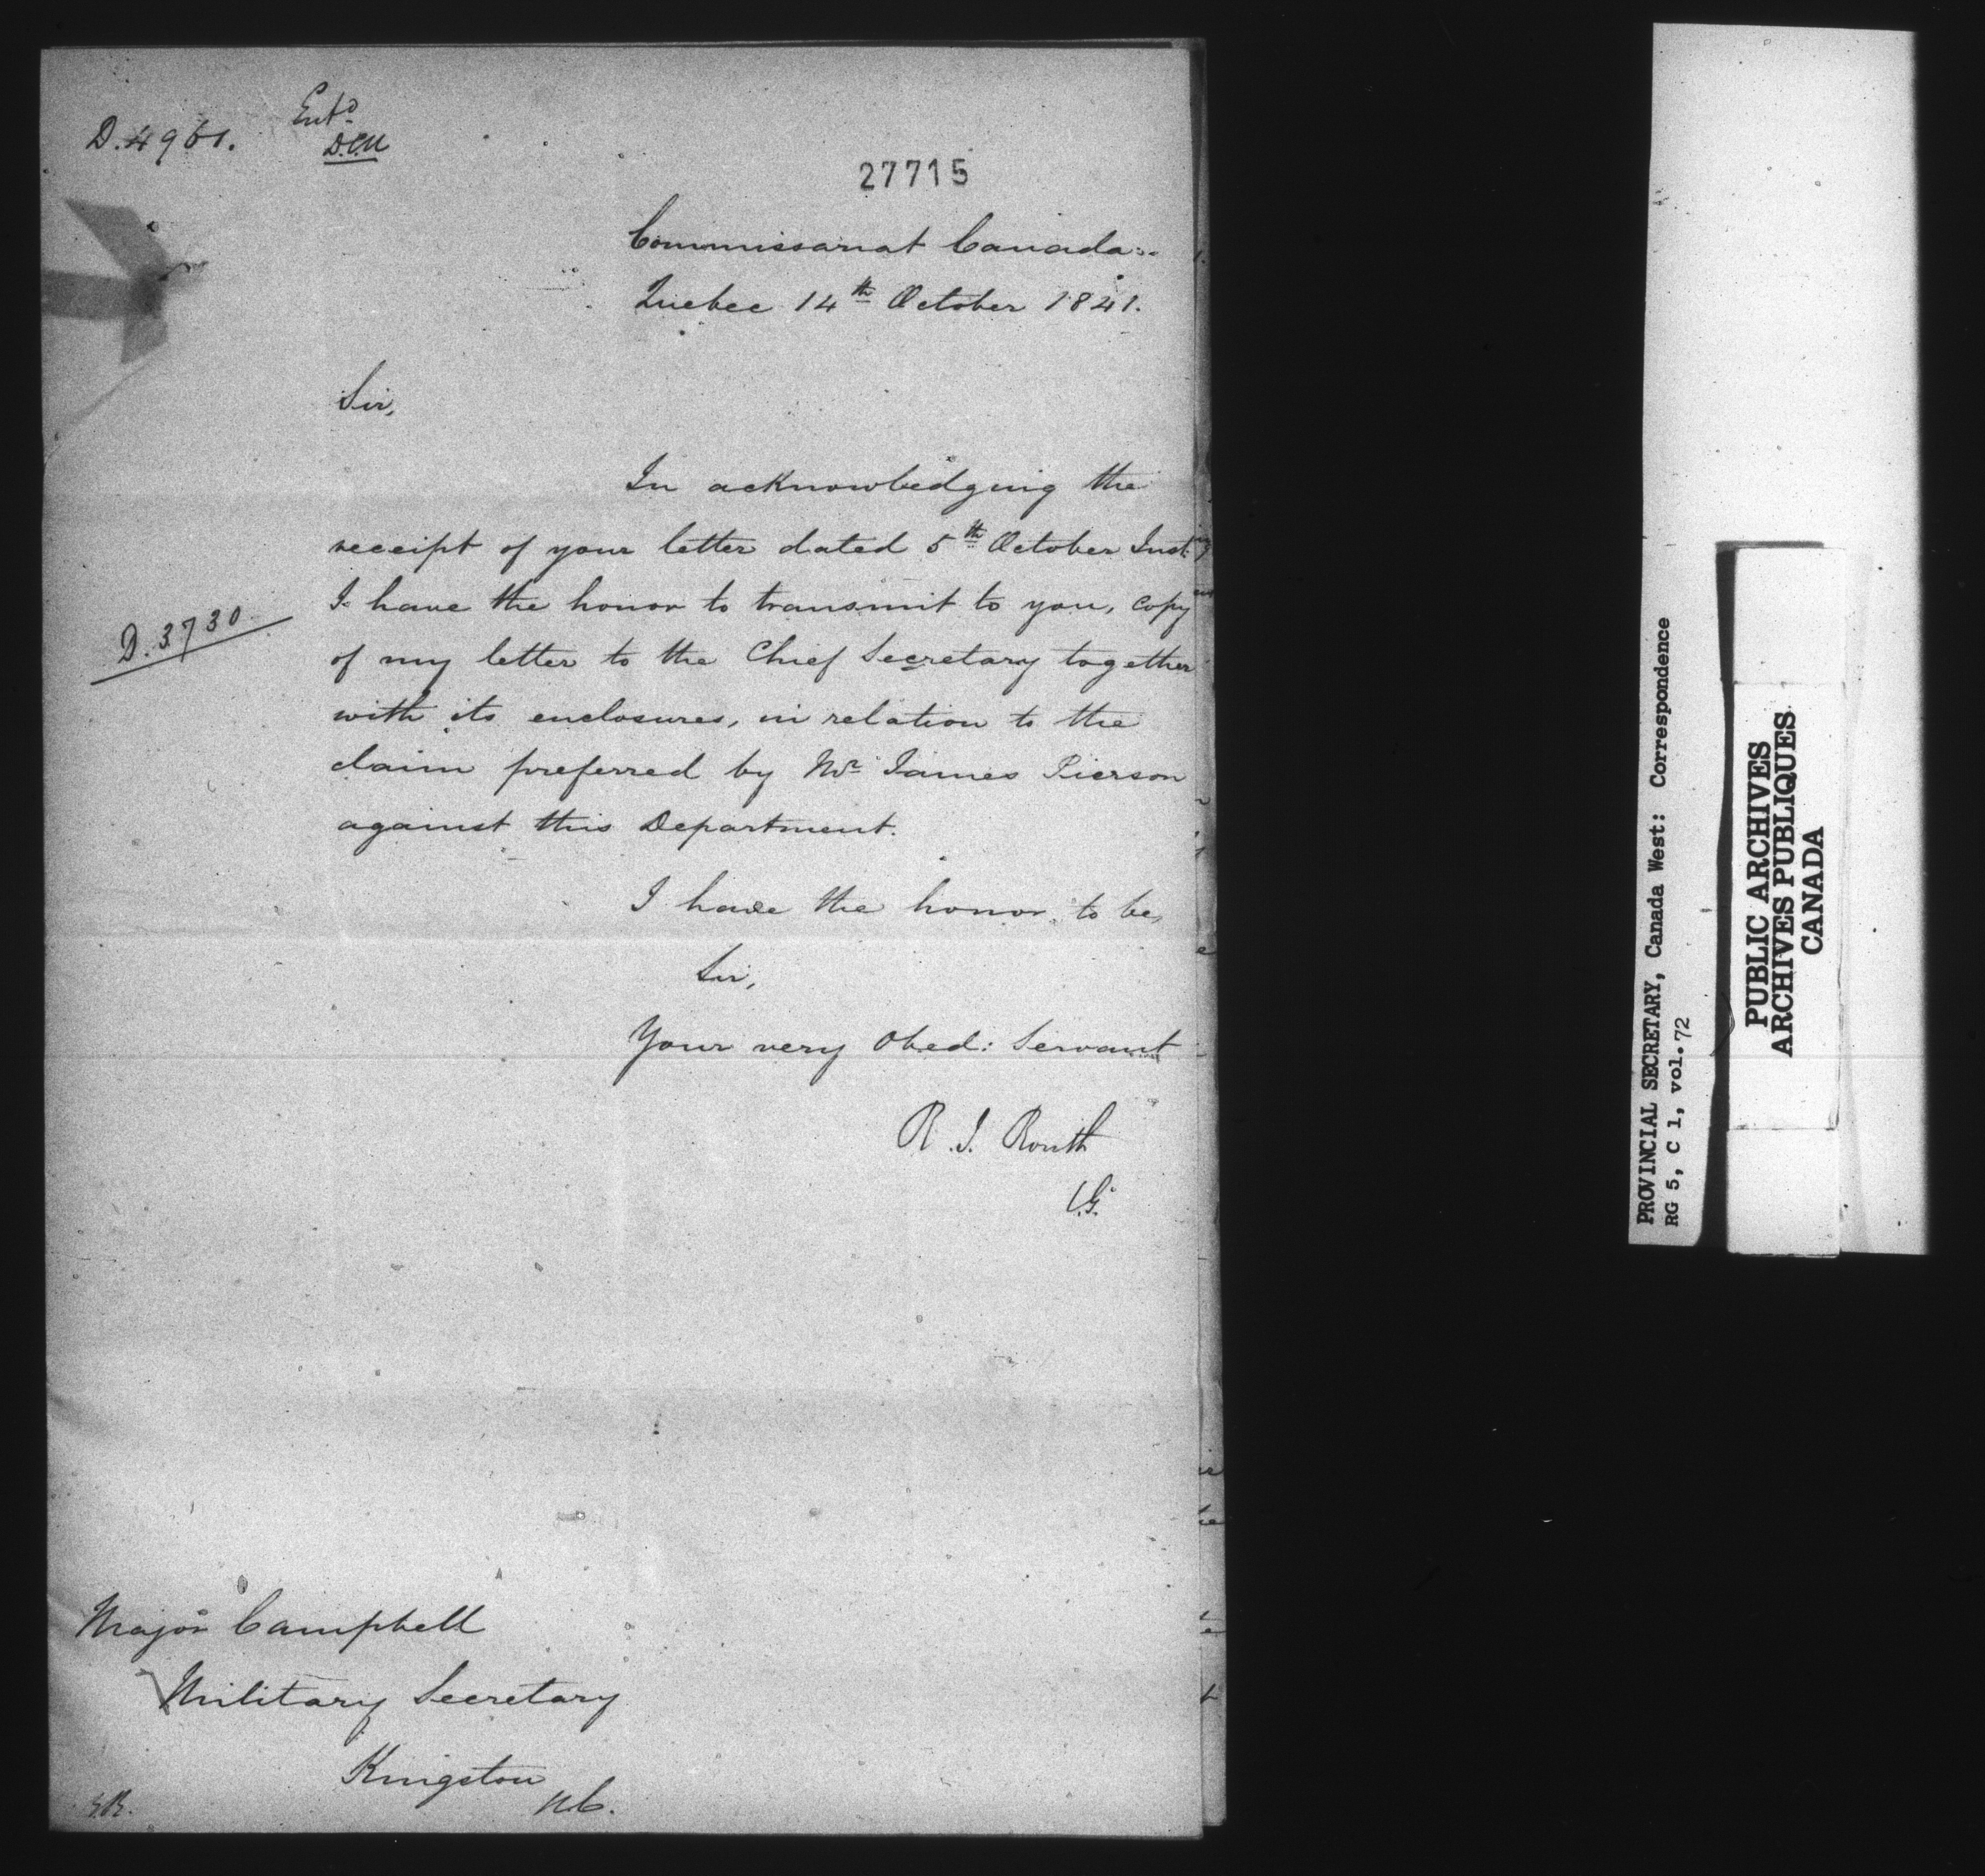 D. 4961.
Entd
D.C.N
27715
Commissariat Canada
Quebec 14th October 1841.
Sir,
In acknowledging the
receipt of your letter dated 5th October Inst
I have the honor to transmit to you, copy
D. 3730
of my letter to the Chief Secretary together
with its enclosures, in relation to the
claim preferred by Mr James Pierson
against this Department.
I have the honor to be,
Sir,
Your very Obed: Servant
R. I. Routh
C.G.
Major Campbell
Military Secretary
Kingston
U.C.
PROVINCIAL SECRETARY, Canada West: Correspondence
RG 5, C 1, vol. 72
PUBLIC ARCHIVES
ARCHIVES PUBLIQUES
CANADA